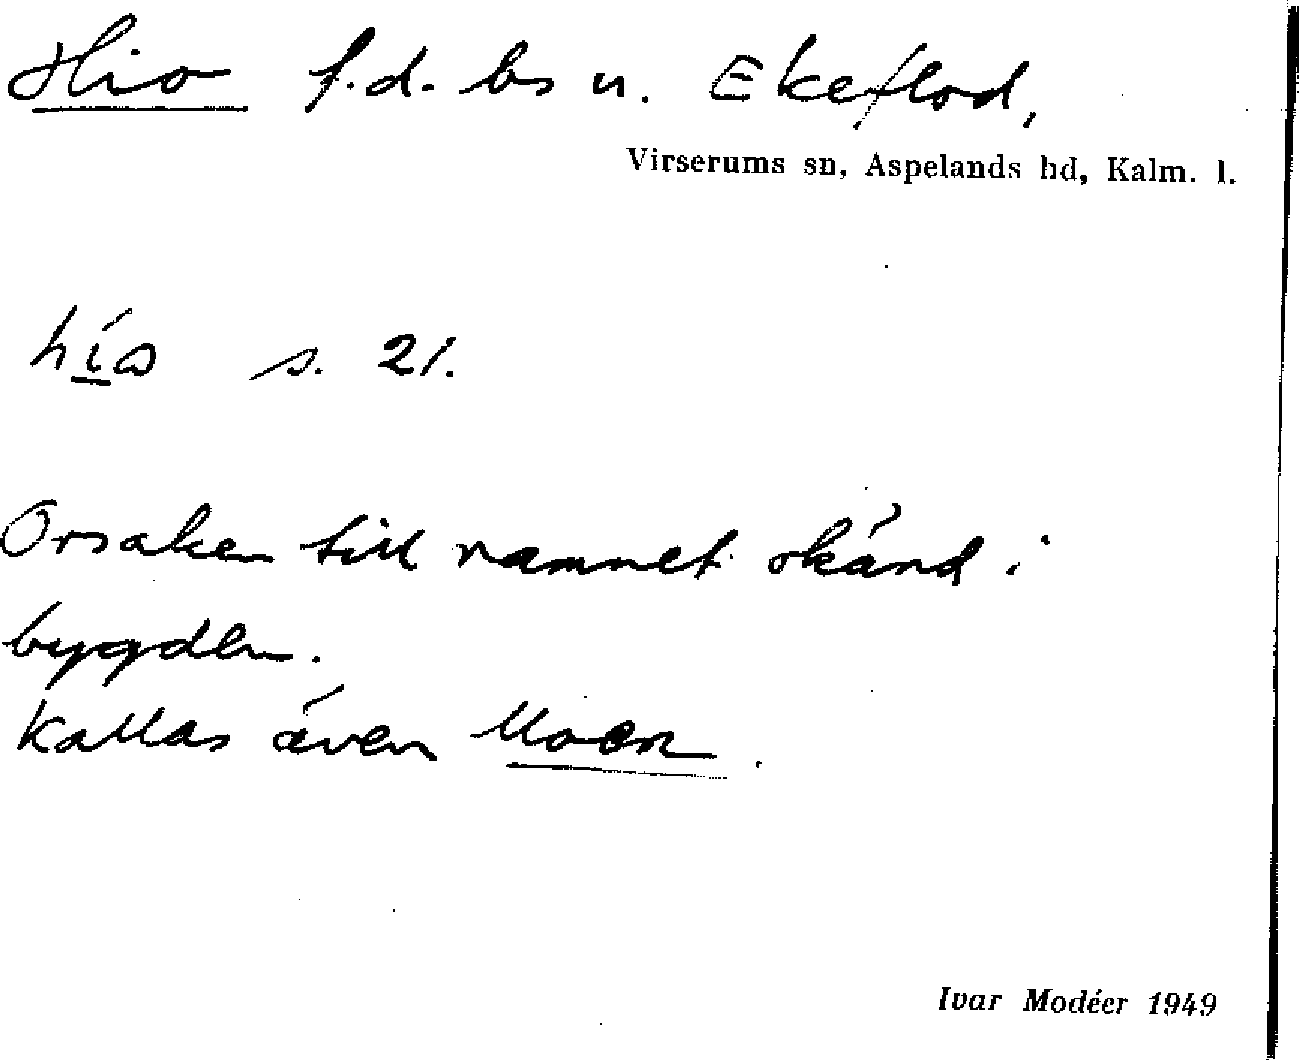 Hio f.d. bs u. Ekeflod,
Virserums sn, Aspelands hd, Kalm. l.
s. 21.
Orsaken till namnet okänd i
bygden.
Kallas även Moen.
Ivar Modéer 1949